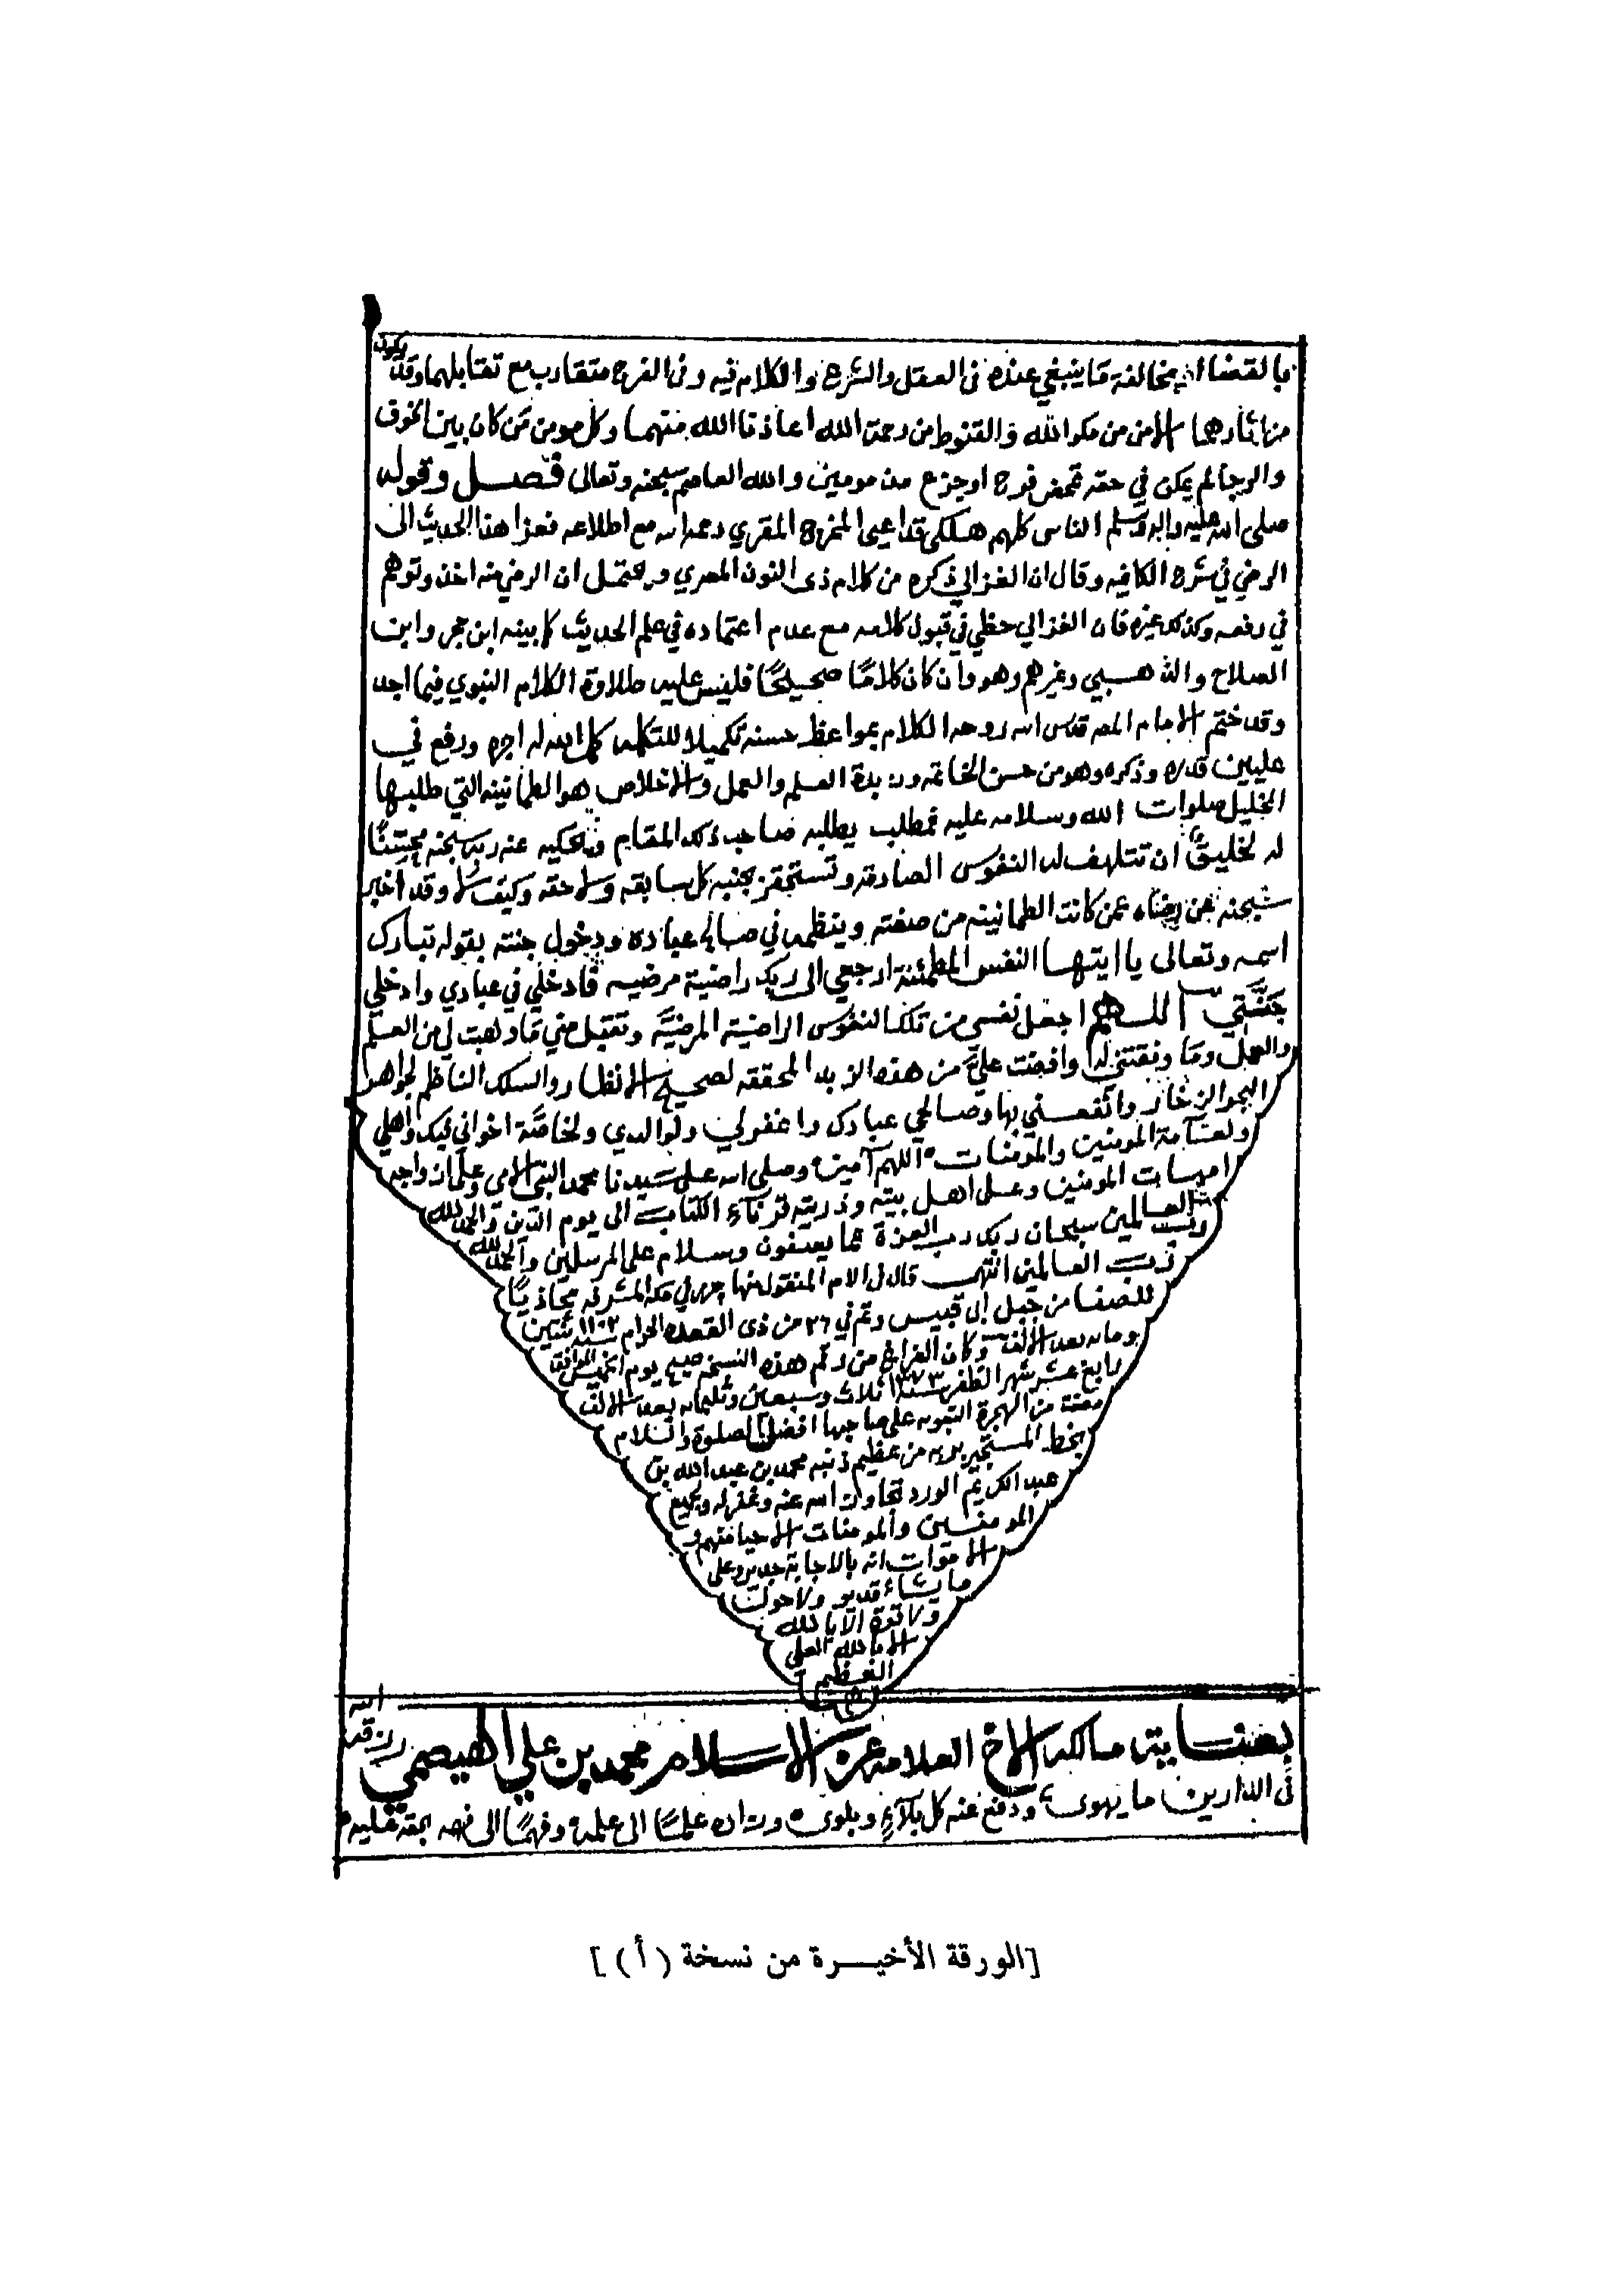 بالقضاء مخالفة ما ينبغي عنده في العقل والشرع والكلام فيه وفي الفرح متقارب مع تقابلهما وقد يكون
من اثارهما الامن من مكر الله والقنوط من رحمة الله اعاذنا الله منهما وكل مومن من كان بين الخوف
والرجا لم يكن في حقه تمحض فرح او جزع من مومن والله العاصم سبحنه وتعالى فصل وقوله
صلى الله عليه واله وسلم الناس كلهم هلكى قد اعيى المخرج المقري رحمه الله مع اطلاعه فعزا هذا الحديث الى
الرضي في شرح الكافيه وقال ان الغزالي ذكره من كلام ذي النون المصري ويحتمل ان الرضي منه اخذ وتوهم
في رفعه وكذلك غيره فان الغزالي حظي في قبول كلامه مع عدم اعتماده في علم الحديث كما بينه ابن حجر وابن
الصلاح والذهبي وغيرهم وهو وان كان كلامًا صحيحًا فليس عليه طلاوة الكلام النبوي فيما اجد
وقد ختم الامام المص قدس الله روحه الكلام بمواعظ حسنه تكميلا للتكلمه كمل الله له اجره ورفع في
عليين قدره وذكره وهو من حسن الخاتمه وزبدة العلم والعمل والاخلاص هو الطمانينه التي طلبها
الخليل صلوات الله وسلامه عليه فمطلب يطلبه صاحب ذلك المقام ويحكيه عنه ربه سبحنه
له لخليق ان تتلهف له النفوس الصادقه وتستحقر بجنبه كل سابقه ولاحقه وكيف لا وقد اخبر
سبحنه عن رضاه عمن كانت الطمانينه من صفته وينظمه في صالح عباده ودخول جنته بقوله تبارك
اسمه وتعالى يا ايتها النفس المطمئنة ارجعي الى ربك راضية مرضيه فادخلي في عبادي وادخلي
جنتي اللهم اجعل نفسي من تلك النفوس الراضية المرضيَّه وتقبل مني ما وهبت لي من العلم
والعمل وما وفقتني له وافضت عليَّ من هذه الزبد المحققه لصحيح الانظار والسلك الناظم لجواهر
البحر الزخار وانفعني بها وصالحي عبادك واغفر لي ولوالدي ولخاصَّة اخواني فيك واهلي
ولعامة المومنين والمومنات اللهم آمين وصلى الله على سيدنا محمد النبي الامي وعلى ازواجه
امهات المومنين وعلى اهل بيته وذريته قرنآءِ الكتاب الى يوم الدين والحمد لله
رب العالمين سبحان ربك رب العزة عما يصفون وسلام على المرسلين والحمد لله
رب العالمين انتهى قال في الام المنقول منها حرر في مكه المشرفه محاذيًا
للصفا من جبل ابي قبيس وتم في ٢٦ من ذي القعده الحرام سنه ١١٠٢ ثنتين
وماىه بعد الالف وكان الفراغ من رقم هذه النسخه صبح يوم الخميس الموافق
رابع عشر شهر الظفر سنة ١٣٧٣ ثلاث وسبعين وثلثمائه بعد الالف
مضت من الهجرة النبويه على صاحبها افضل الصلوة والسلام
بخط المستجير بربه من عظيم ذنبه محمد بن عبد الله بن
عبد الكريم الورد تجاوز الله عنه وغفر له ولجميع
المومنين والمومنات الاحيا منهم و
الاموات انه بالاجابة جدير وعلى
ما يشاء قدير ولا حول
ولا قوة الا بالله
الا بالله العلي
العظيم
بعناية مالكه الاخ العلامه عز الاسلام محمد بن علي الهيصمي رزقه الله
في الدارين ما يهوى ودفع عنه كل بلآءٍ وبلوى وزاده علمًا الى علمه وفهمًا الى فهمه بحقه عليه
[الورقة الأخيرة من نسخة (أ)]